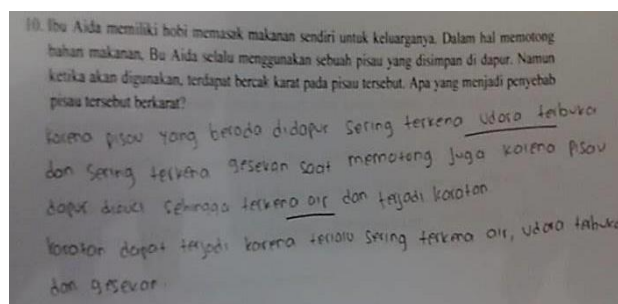 10. Ibu Aida memiliki hobi memasak makanan sendiri untuk keluarganya. Dalam hal memotong
bahan makanan, Bu Aida selalu menggunakan sebuah pisau yang disimpan di dapur. Namun
ketika akan digunakan, terdapat bercak karat pada pisau tersebut. Apa yang menjadi penyebab
pisau tersebut berkarat?
karena pisau yang berada didapur sering terkena udara terbuka
dan sering terkena gesekan saat memotong juga karena pisau
dapur dicuci sehingga terkena air dan terjadi karatan
karatan dapat terjadi karena terlalu sering terkena air, udara terbuka
dan gesekan.